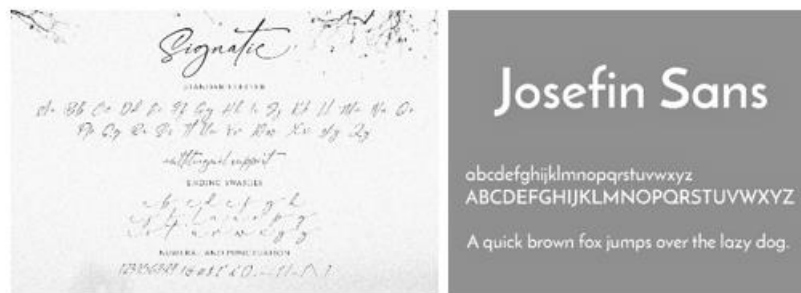 Signatie
STANDAR LETTER
Aa Bb Cc Dd Ee Ff Gg Hh Ii Jj Kk Ll Mm Nn Oo
Pp Qq Rr Ss Tt Uu Vv Ww Xx Yy Zz
multilingual support
ENDING SWASHES
NUMERAL AND PUNCTUATION
Josefin Sans
abcdefghijklmnopqrstuvwxyz
ABCDEFGHIJKLMNOPQRSTUVWXYZ
A quick brown fox jumps over the lazy dog.